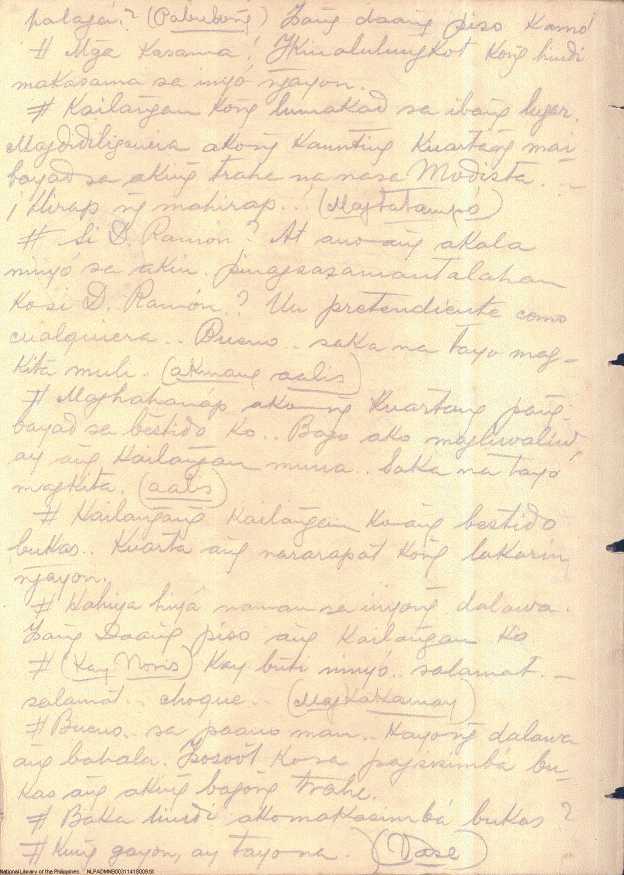 palagáy? (Pabubóng) Isáng daáng piso kamó
# Mga kasama! Ikinalulungkot kong hindi
makasama sa inyó ngayon.
# Kailangan kong lumakad sa ibáng lugar.
Magdidiligencia akong kaunting kuartang mai-
bayad sa aking trahe na nasa Modista. –
¡Hirap ng mahirap..! (Magtatampó)
# Si D. Ramón? At ano ang akala
ninyó sa akin. pinagsasamantalahan
ko si D. Ramón? Un pretendiente como
cualquiera.. Bueno.. saka na tayo mag-
kita muli. (akmang aalis)
# Maghahanáp ako ng kuartang pang-
bayad sa bestido ko.. Bago ako magliwaliw,
ay ang kailangan muna.. Saka na tayo
magkita. (aalis)
# Kailangang kailangan ko ang bestido
bukas.. Kuarta ang nararapat kong lakarin
ngayon.
# Kahiya hiyá naman sa inyong dalawa.
Isáng Daáng piso ang kailangan ko
# (Kay Noris) Kay buti ninyó.. salamat. –
salamat.. choque.. (Magkakamay)
# Bueno.. sa paano man.. Kayong dalawa
ang bahala. Isosoót ko sa pagsisimbá bu-
kas ang aking bagong trahe.
# Baka hindi ako makasimbá bukas?
# Kung gayon, ay tayo na. (Vase)
National Library of the Philippines